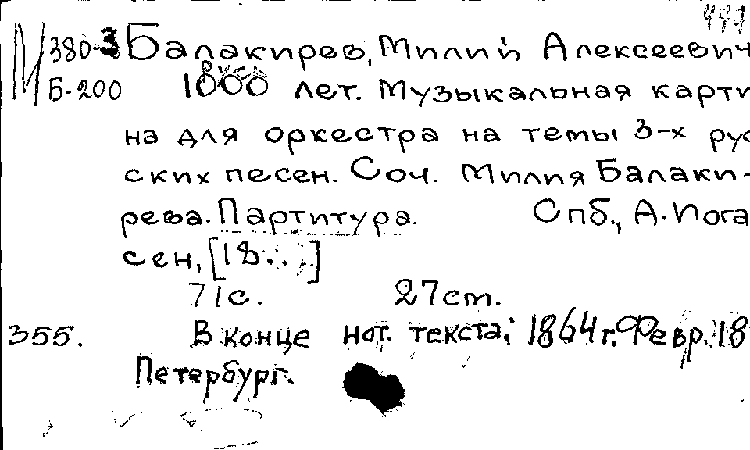 М 380-3 Балакирев, Милий Алексеевич
Б-200 1000 лет. Музыкальная карти
на для оркестра на темы 3-х рус
ских песен. Соч. Милия Балаки-
рева. Партитура. Спб., А. Иога
сен, [18..]
71с. 27cm.
355. В конце нот. текста: 1864 г. Февр. 18
Петербург.